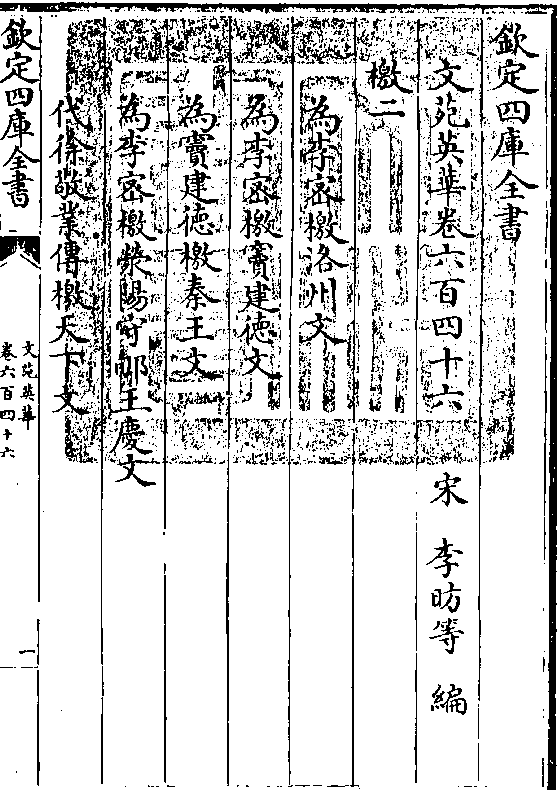 欽定四庫全書
文苑英華卷六百四十六 宋 李昉等 編
檄二
為李密檄洛州文
為李密檄竇建德文
為竇建德檄秦王文
為李密檄滎陽守郇王慶文
代徐敬業傳檄天下文
欽定四庫全書
文苑英華
卷六百四十六
一